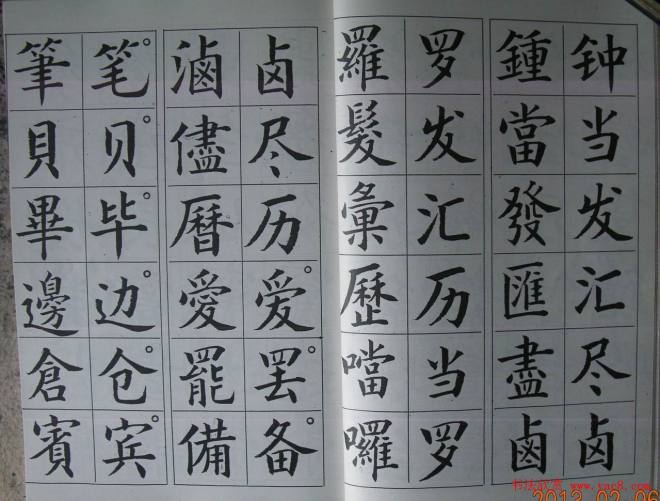 鍾 钟
當 当
發 发
匯 汇
盡 尽
鹵 卤
羅 罗
髮 发
彙 汇
歷 历
噹 当
囉 罗
滷 卤
儘 尽
曆 历
愛 爱
罷 罢
備 备
筆 笔
貝 贝
畢 毕
邊 边
倉 仓
賓 宾
书法欣赏 www.yac8.com